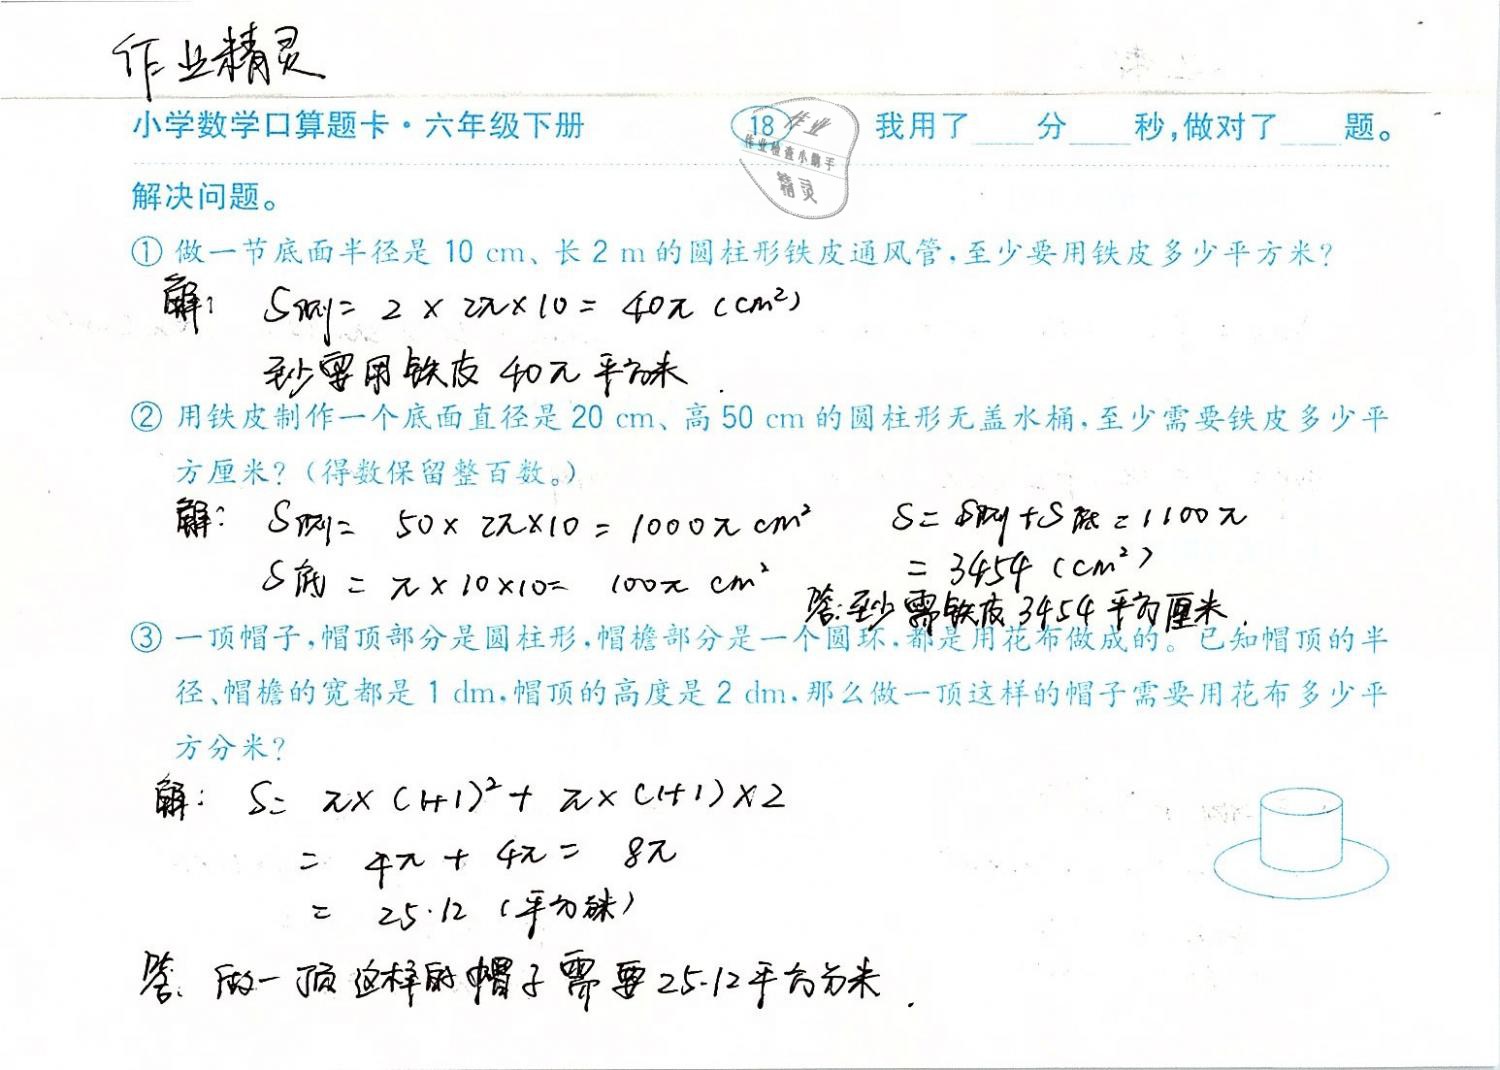 作业精灵
小学数学口算题卡·六年级下册 18 我用了____分____秒,做对了____题。
作业
作业检查小助手
精灵
解决问题。
① 做一节底面半径是 10 cm、长 2 m 的圆柱形铁皮通风管,至少要用铁皮多少平方米?
解: S侧= 2 × 2π×10 = 40π (cm²)
至少需要用铁皮 40π 平方米.
② 用铁皮制作一个底面直径是 20 cm、高 50 cm 的圆柱形无盖水桶,至少需要铁皮多少平
方厘米?(得数保留整百数。)
解: S侧= 50× 2π×10 = 1000π cm² S= S侧+S底 = 1100π
S底 = π×10×10= 100π cm² = 3454 (cm²)
答:至少需铁皮3454平方厘米.
③ 一顶帽子,帽顶部分是圆柱形,帽檐部分是一个圆环,都是用花布做成的。已知帽顶的半
径、帽檐的宽都是 1 dm,帽顶的高度是 2 dm,那么做一顶这样的帽子需要用花布多少平
方分米?
解: S= π×(1+1)²+ π×(1+1)×2
= 4π + 4π = 8π
= 25.12 (平方分米)
答. 做一顶这样的帽子需要25.12平方分米.